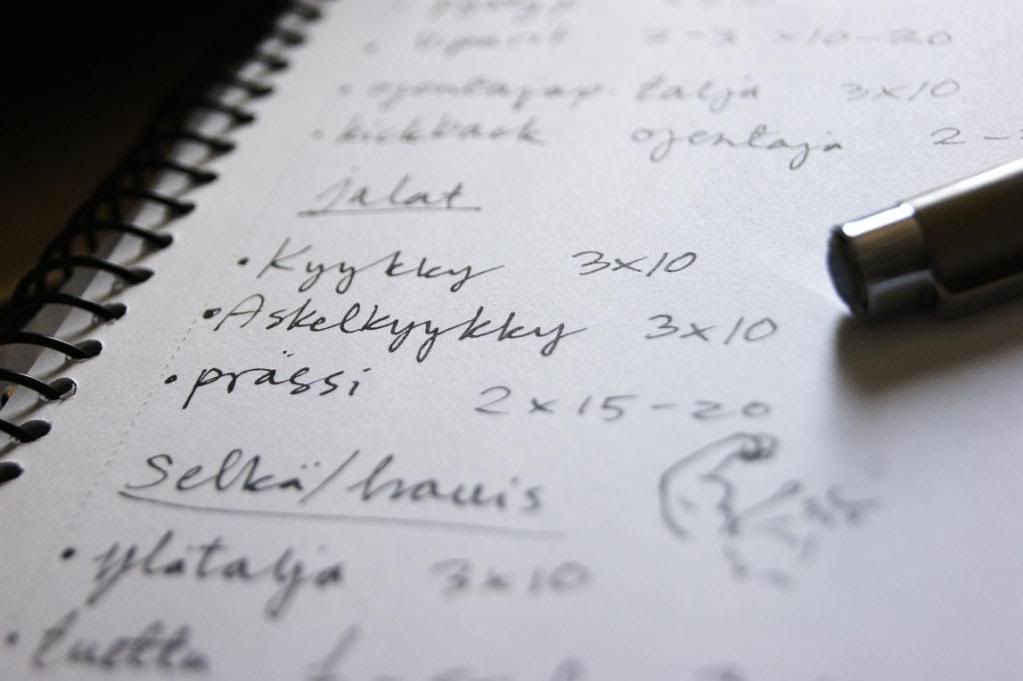 • Vipunit 2-3 x10-20
• ojentajap. talja 3x10
• kickback ojentaja 2-
jalat
• Kyykky 3x10
• Askelkyykky 3x10
• prässi 2x15-20
Selkä/hauis
• ylätalja 3x10